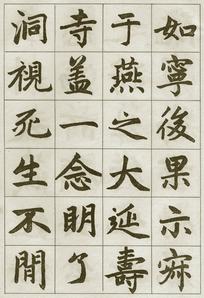 如寧後果示寂
于燕之大延壽
寺蓋一念明了
洞視死生不間